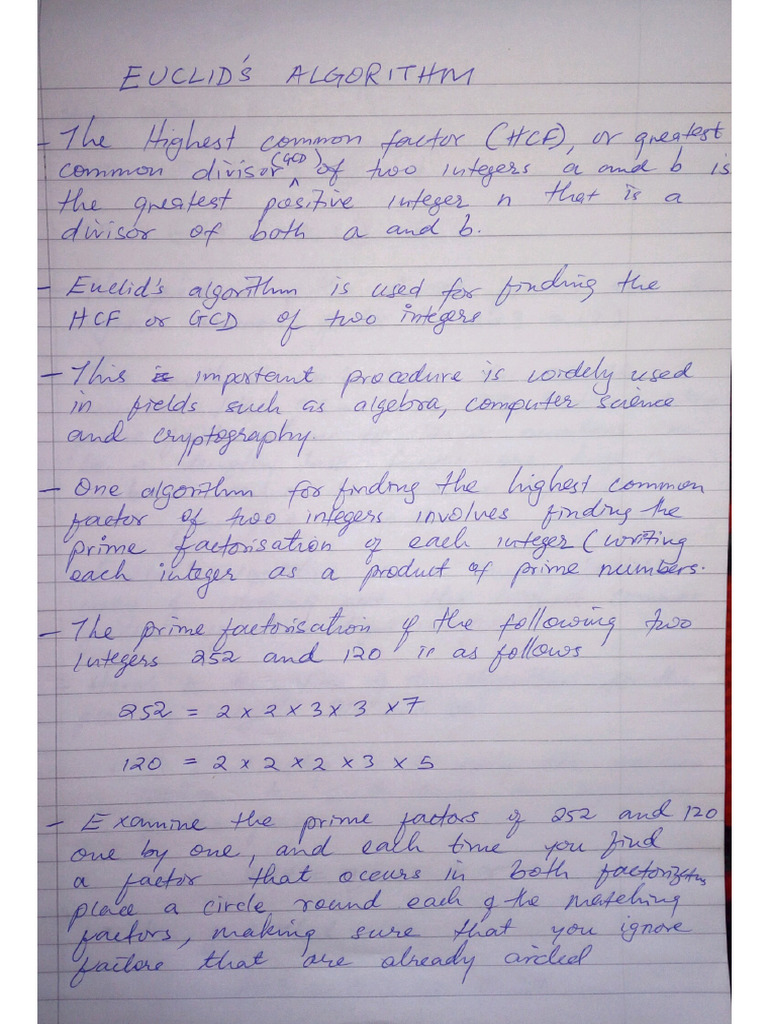 EUCLID'S ALGORITHM
- The Highest common factor (HCF), or greatest
common divisor (GCD) of two integers a and b is
the greatest positive integer n that is a
divisor of both a and b.
- Euclid's algorithm is used for finding the
HCF or GCD of two integers
- This is important procedure is widely used
in fields such as algebra, computer science
and cryptography.
- One algorithm for finding the highest common
factor of two integers involves finding the
prime factorisation of each integer (writing
each integer as a product of prime numbers.
- The prime factorisation of the following two
integers 252 and 120 is as follows
252 = 2 x 2 x 3 x 3 x 7
120 = 2 x 2 x 2 x 3 x 5
- Examine the prime factors of 252 and 120
one by one, and each time you find
a factor that occurs in both
place a circle round each of the matching
factors, making sure that you ignore
that are already circled